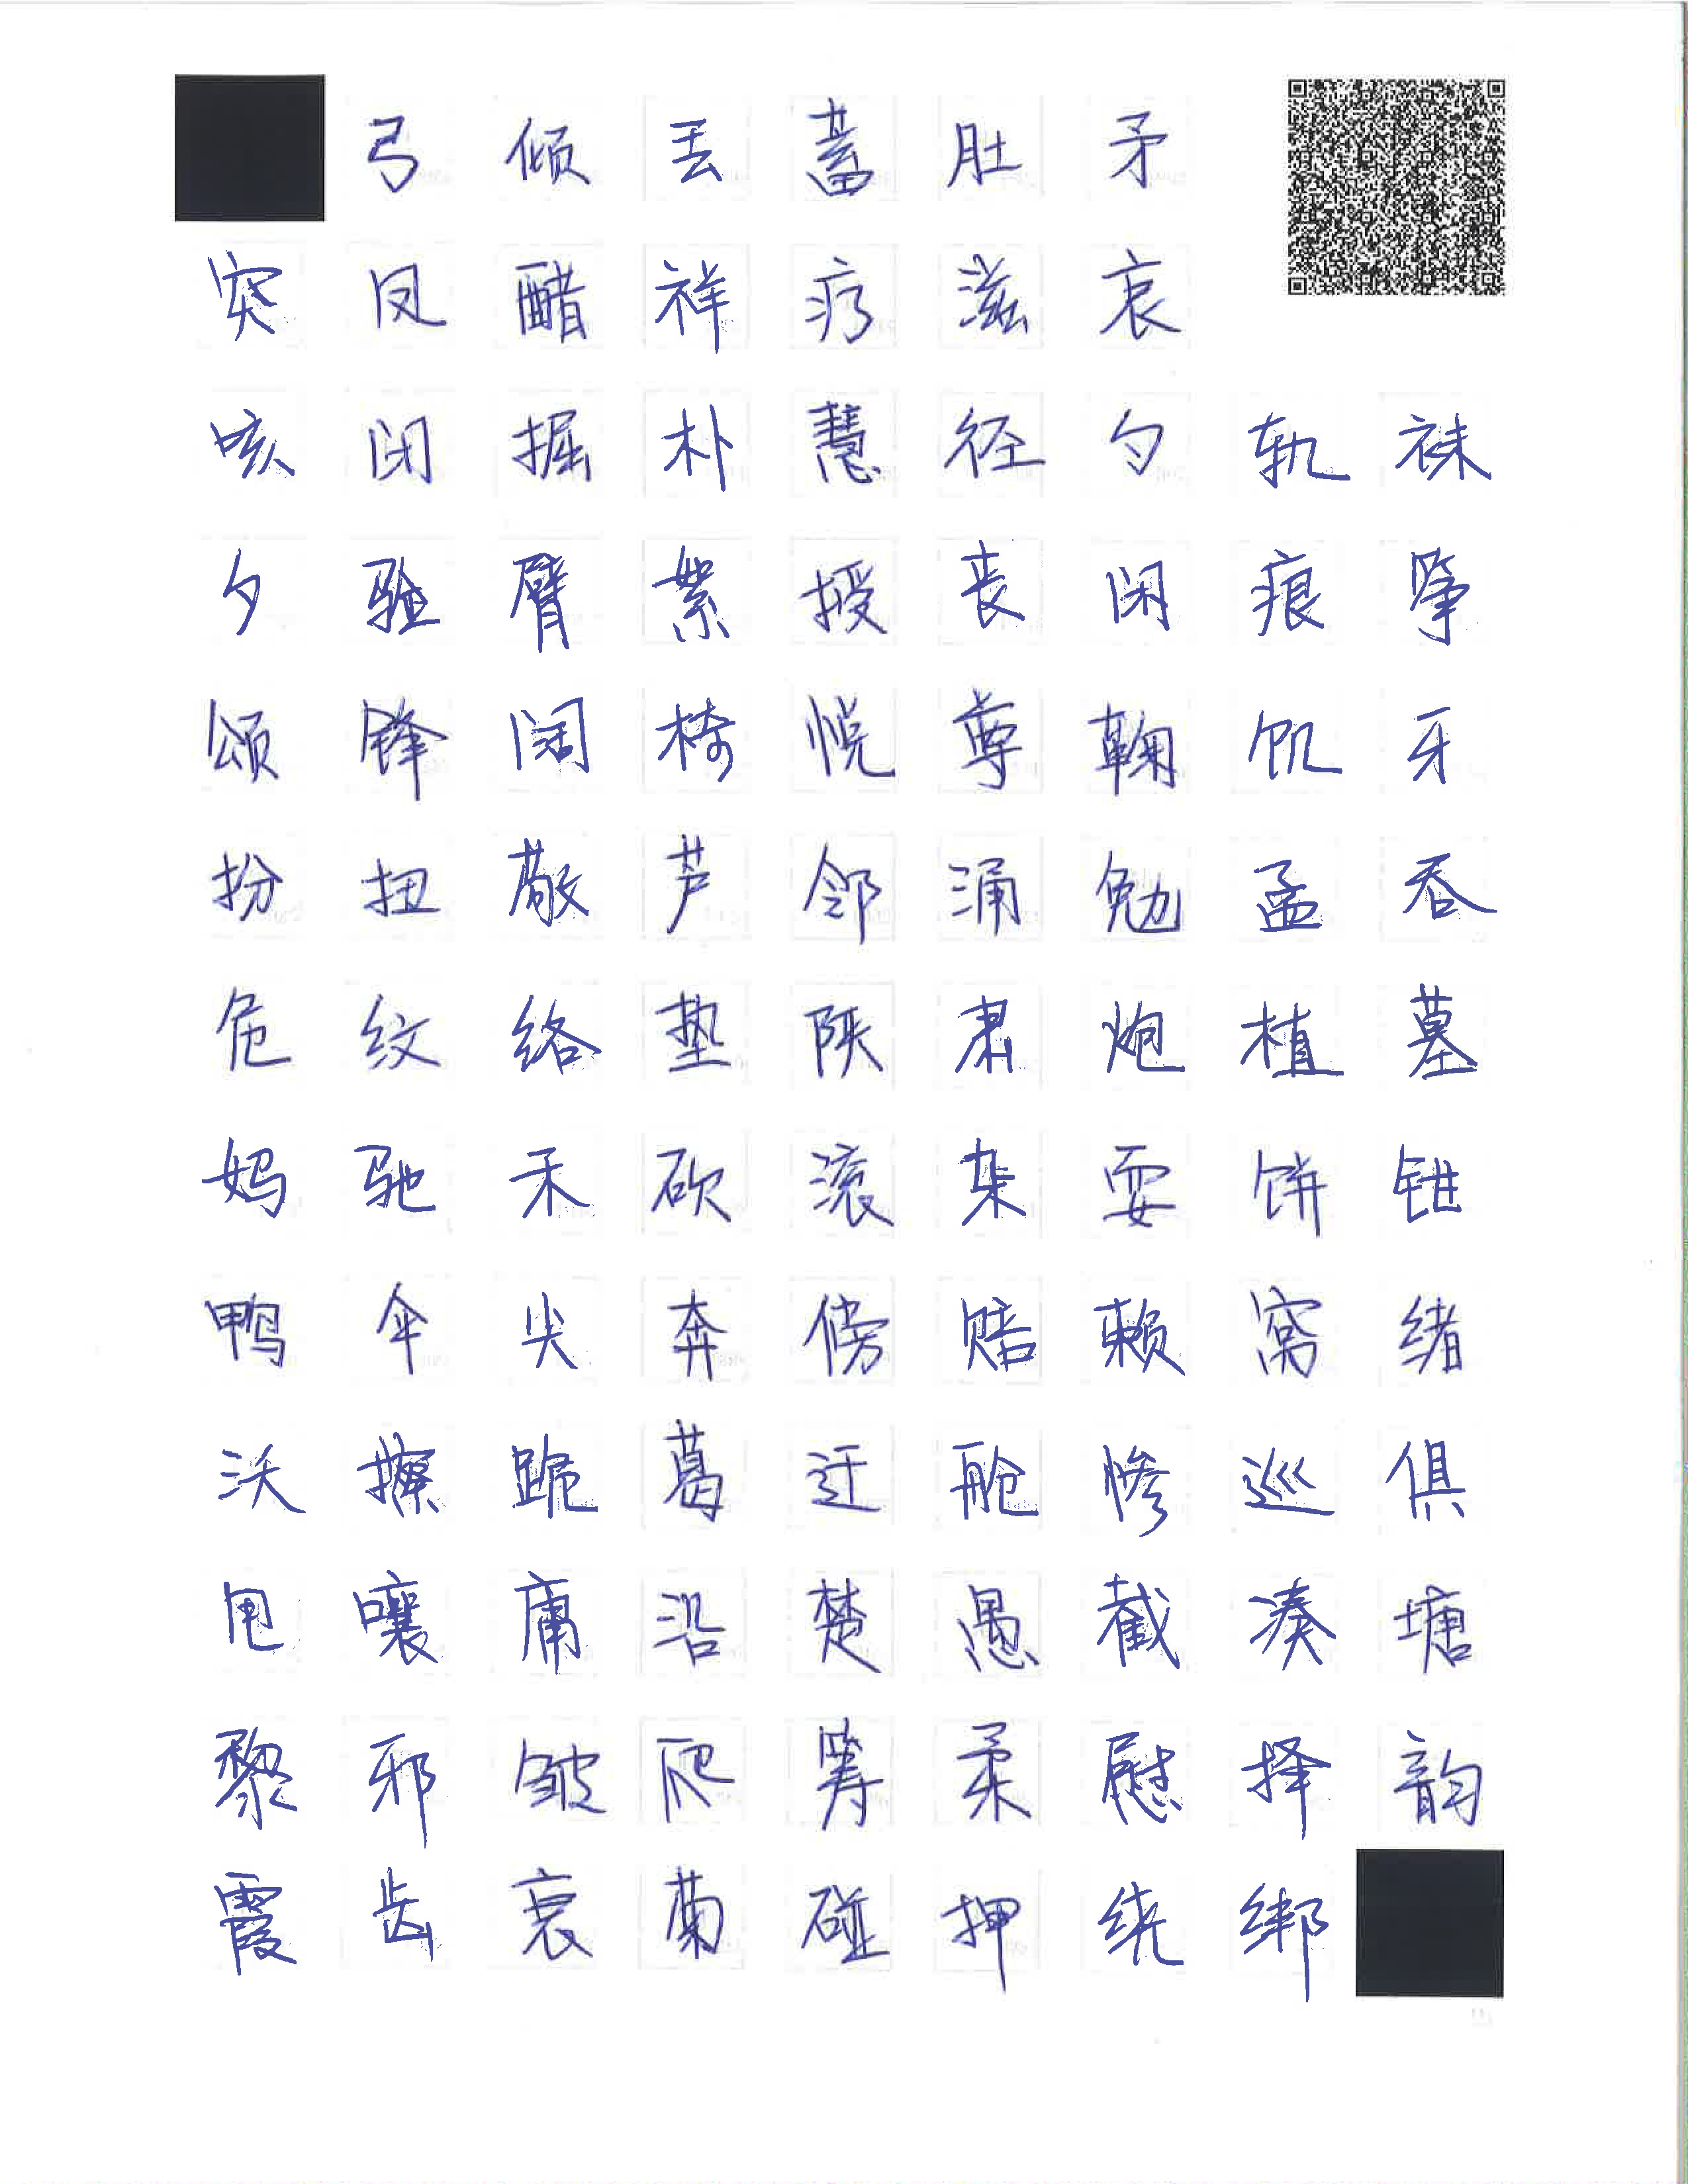 弓倾丢蓄肚矛
突凤醋祥疗滋哀
咳闭掘朴慧径勺轨袜
夕驻臂絮授丧闲痕筝
颂锋阔椅悦尊鞠饥牙
扮扭敲芦邻涌勉孟吞
危纹络垫陕肃炮植墓
妈驰禾砍滚柒耍饼钳
鸭伞尖奔傍赔赖窝绪
沃擦跪葛迁舱惨巡俱
甩嚷庸沿楚愚截凑塘
黎邪皱爬筹柔慰择韵
霞齿衰菊碰押绕绑